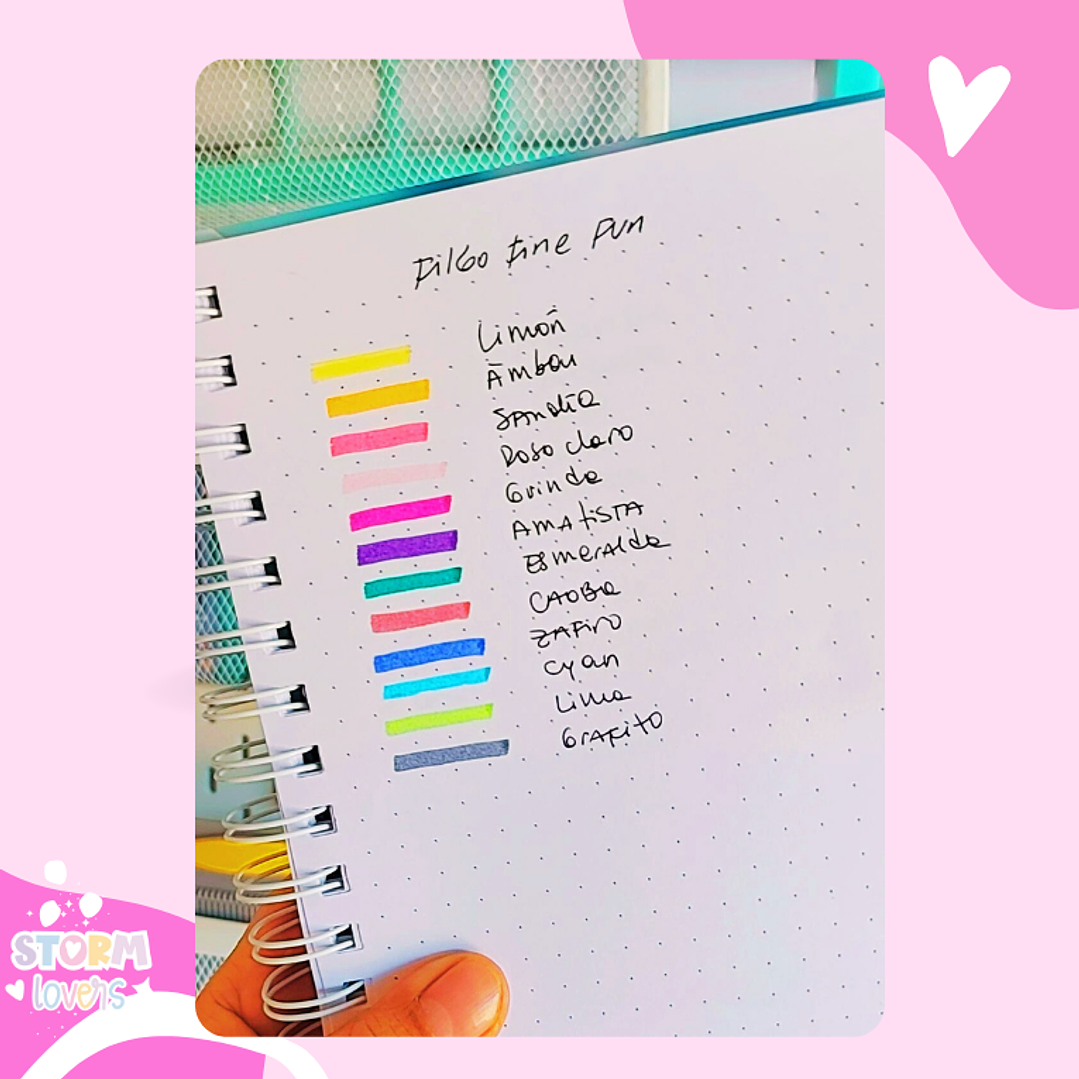 Filgo Fine Pun
Limón
Ámbar
Sandía
Rosa claro
Guinda
AMAtiSTA
Esmeralda
CAOBA
ZAFiro
Cyan
Lima
GrAFiTO
STORM
lovers